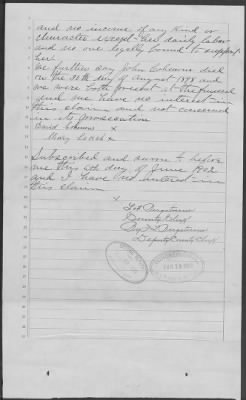 and no income of any kind or
character except her daily labor
and no one legally bound to support
her
We further say John Cohevens died
on the 30th day of August 1898 and
we were both present at the funeral
and we have no interest in
this claim and not concerned
in its prosecution
David x
Mary x
Subscribed and sworn to before
me this 6th day of June 1902
and I have no interest in
this claim
x
County Clerk
Deputy County Clerk